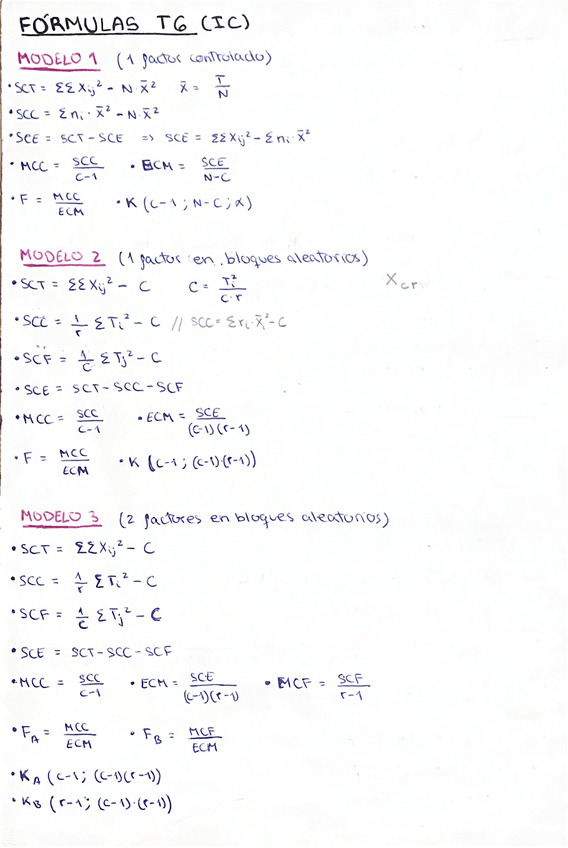 FÓRMULAS T6 (IC)
MODELO 1 (1 factor controlado)
• SCT = ΣΣXij² - N·x̄² x̄ = T/N
• SCC = Σni·x̄² - N·x̄²
• SCE = SCT-SCE => SCE = ΣΣXij² - Σni·x̄²
• MCC = SCC/C-1 • ECM = SCE/N-C
• F = MCC/ECM • K (C-1; N-C; α)
MODELO 2 (1 factor en bloques aleatorios)
• SCT = ΣΣXij² - C C = Ti²/c·r Xcr
• SCC = 1/r ΣTi² - C // SCC = Σri·x̄i² - C
• SCF = 1/C ΣTj² - C
• SCE = SCT-SCC-SCF
• MCC = SCC/C-1 • ECM = SCE/(C-1)(r-1)
• F = MCC/ECM • K (C-1; (C-1)·(r-1))
MODELO 3 (2 factores en bloques aleatorios)
• SCT = ΣΣXij² - C
• SCC = 1/r ΣTi² - C
• SCF = 1/C ΣTj² - C
• SCE = SCT-SCC-SCF
• MCC = SCC/C-1 • ECM = SCE/(C-1)(r-1) • MCF = SCF/r-1
• FA = MCC/ECM • FB = MCF/ECM
• KA (C-1; (C-1)(r-1))
• KB (r-1; (C-1)·(r-1))